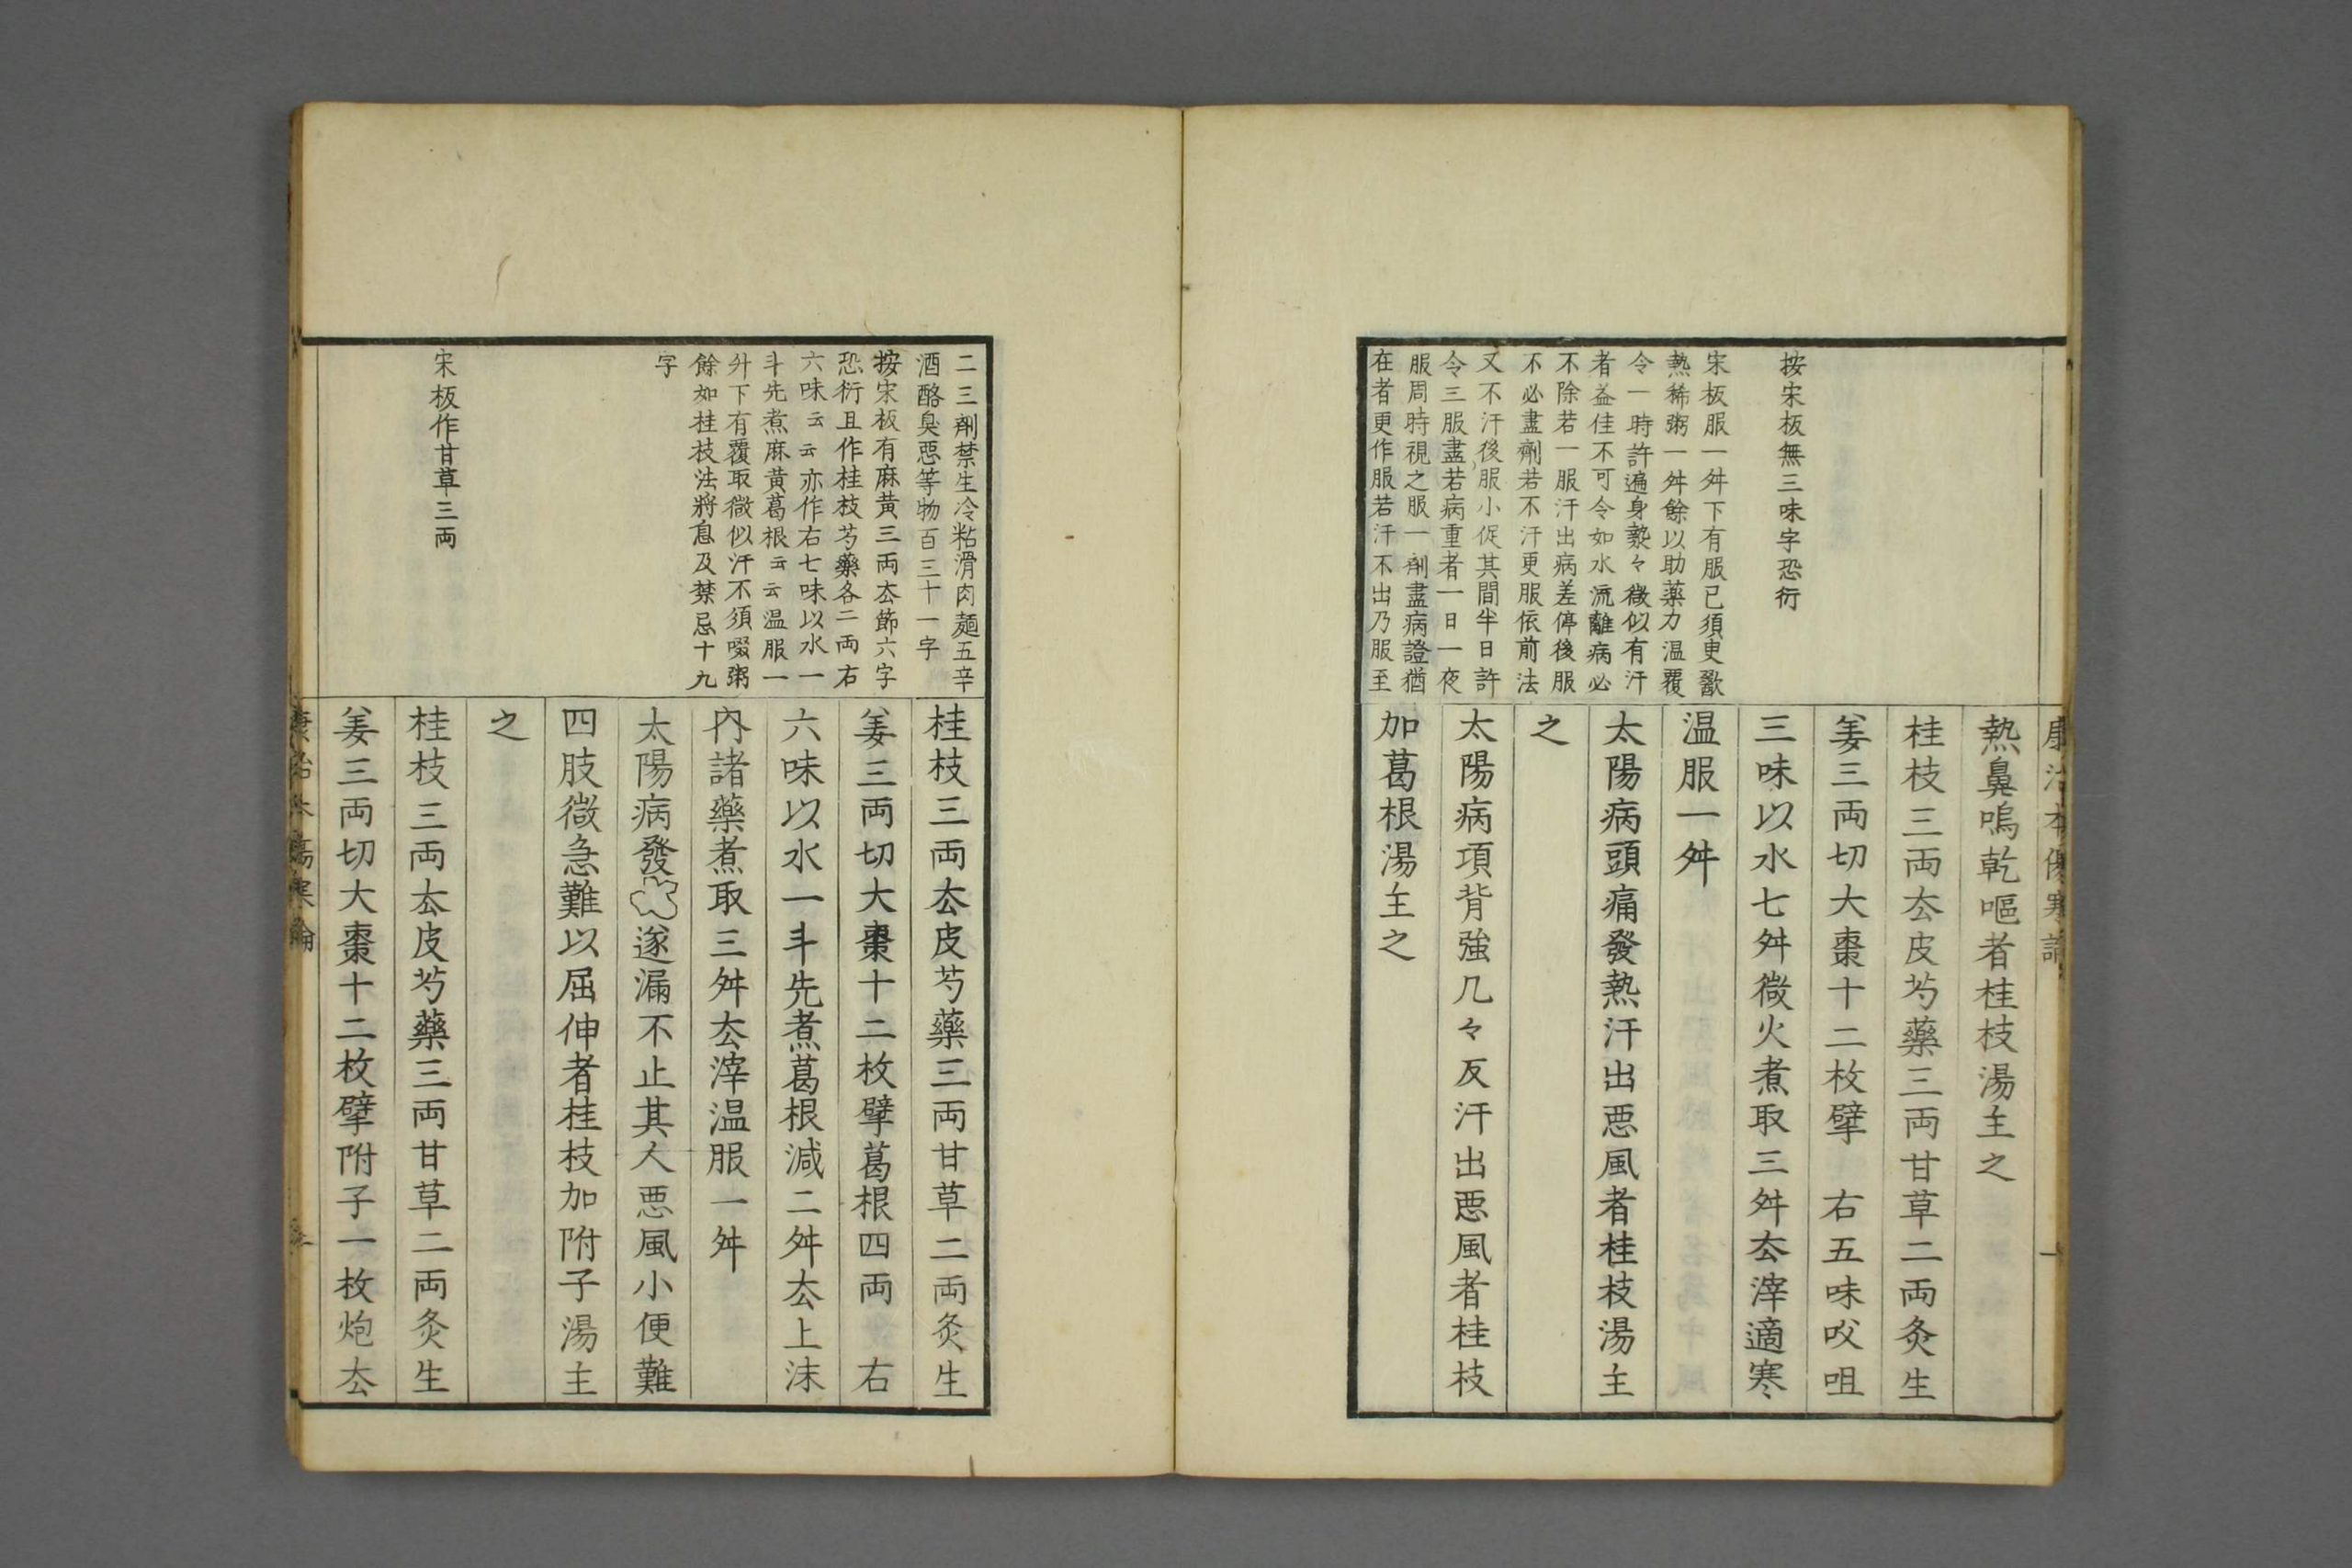 康治本傷寒論
一
按宋板無三味字恐衍
宋板服一舛下有服已須臾歠
熱稀粥一舛餘以助藥力温覆
令一時許遍身漐々微似有汗
者益佳不可令如水流離病必
不除若一服汗出病差停後服
不必盡劑若不汗更服依前法
又不汗後服小促其間半日許
令三服盡若病重者一日一夜
服周時視之服一劑盡病證猶
在者更作服若汗不出乃服至
熱鼻鳴乾嘔者桂枝湯主之
桂枝三両厺皮芍藥三両甘草二両灸生
姜三両切大棗十二枚擘　右五味㕮咀
三味以水七舛微火煮取三舛厺滓適寒
温服一舛
太陽病頭痛發熱汗出悪風者桂枝湯主
之
太陽病項背強几々反汗出悪風者桂枝
加葛根湯主之
二三劑禁生冷粘滑肉麺五辛
酒酪臭悪等物百三十一字
按宋板有麻黄三両厺節六字
恐衍且作桂枝芍藥各二両右
六味云云亦作右七味以水一
斗先煮麻黄葛根云云温服一
升下有覆取微似汗不須啜粥
餘如桂枝法將息及禁忌十九
字
宋板作甘草三両
桂枝三両厺皮芍藥三両甘草二両灸生
姜三両切大棗十二枚擘葛根四両　右
六味以水一斗先煮葛根減二舛厺上沫
内諸藥煮取三舛厺滓温服一舛
太陽病發遂漏不止其人悪風小便難
四肢微急難以屈伸者桂枝加附子湯主
之
桂枝三両厺皮芍藥三両甘草二両灸生
姜三両切大棗十二枚擘附子一枚炮厺
康治本傷寒論